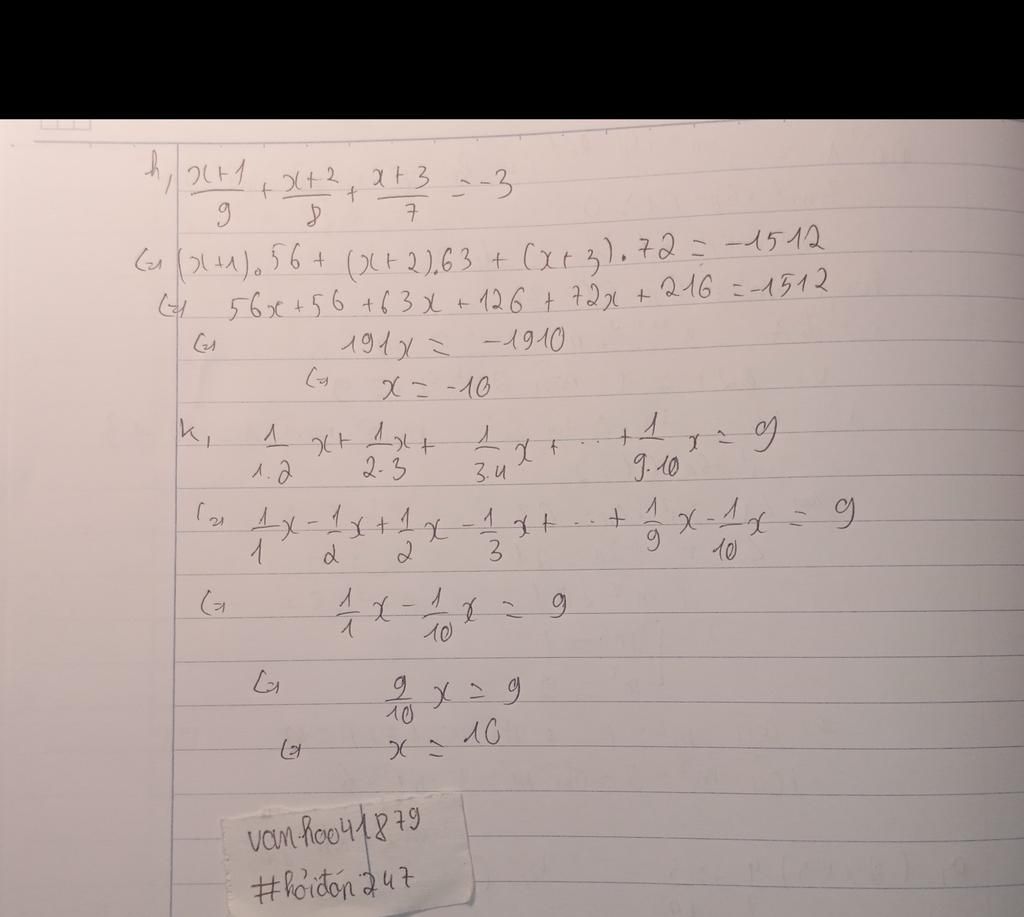 h, x+1/9 + x+2/8 + x+3/7 = -3
<=> (x+1).56 + (x+2).63 + (x+3).72 = -1512
<=> 56x + 56 + 63x + 126 + 72x + 216 = -1512
<=> 191x = -1910
<=> x = -10
k, 1/1.2 x + 1/2.3 x + 1/3.4 x + ... + 1/9.10 x = 9
<=> 1/1 x - 1/2 x + 1/2 x - 1/3 x + ... + 1/9 x - 1/10 x = 9
<=> 1/1 x - 1/10 x = 9
<=> 9/10 x = 9
<=> x = 10
vanhao41879
#hỏiđáp247